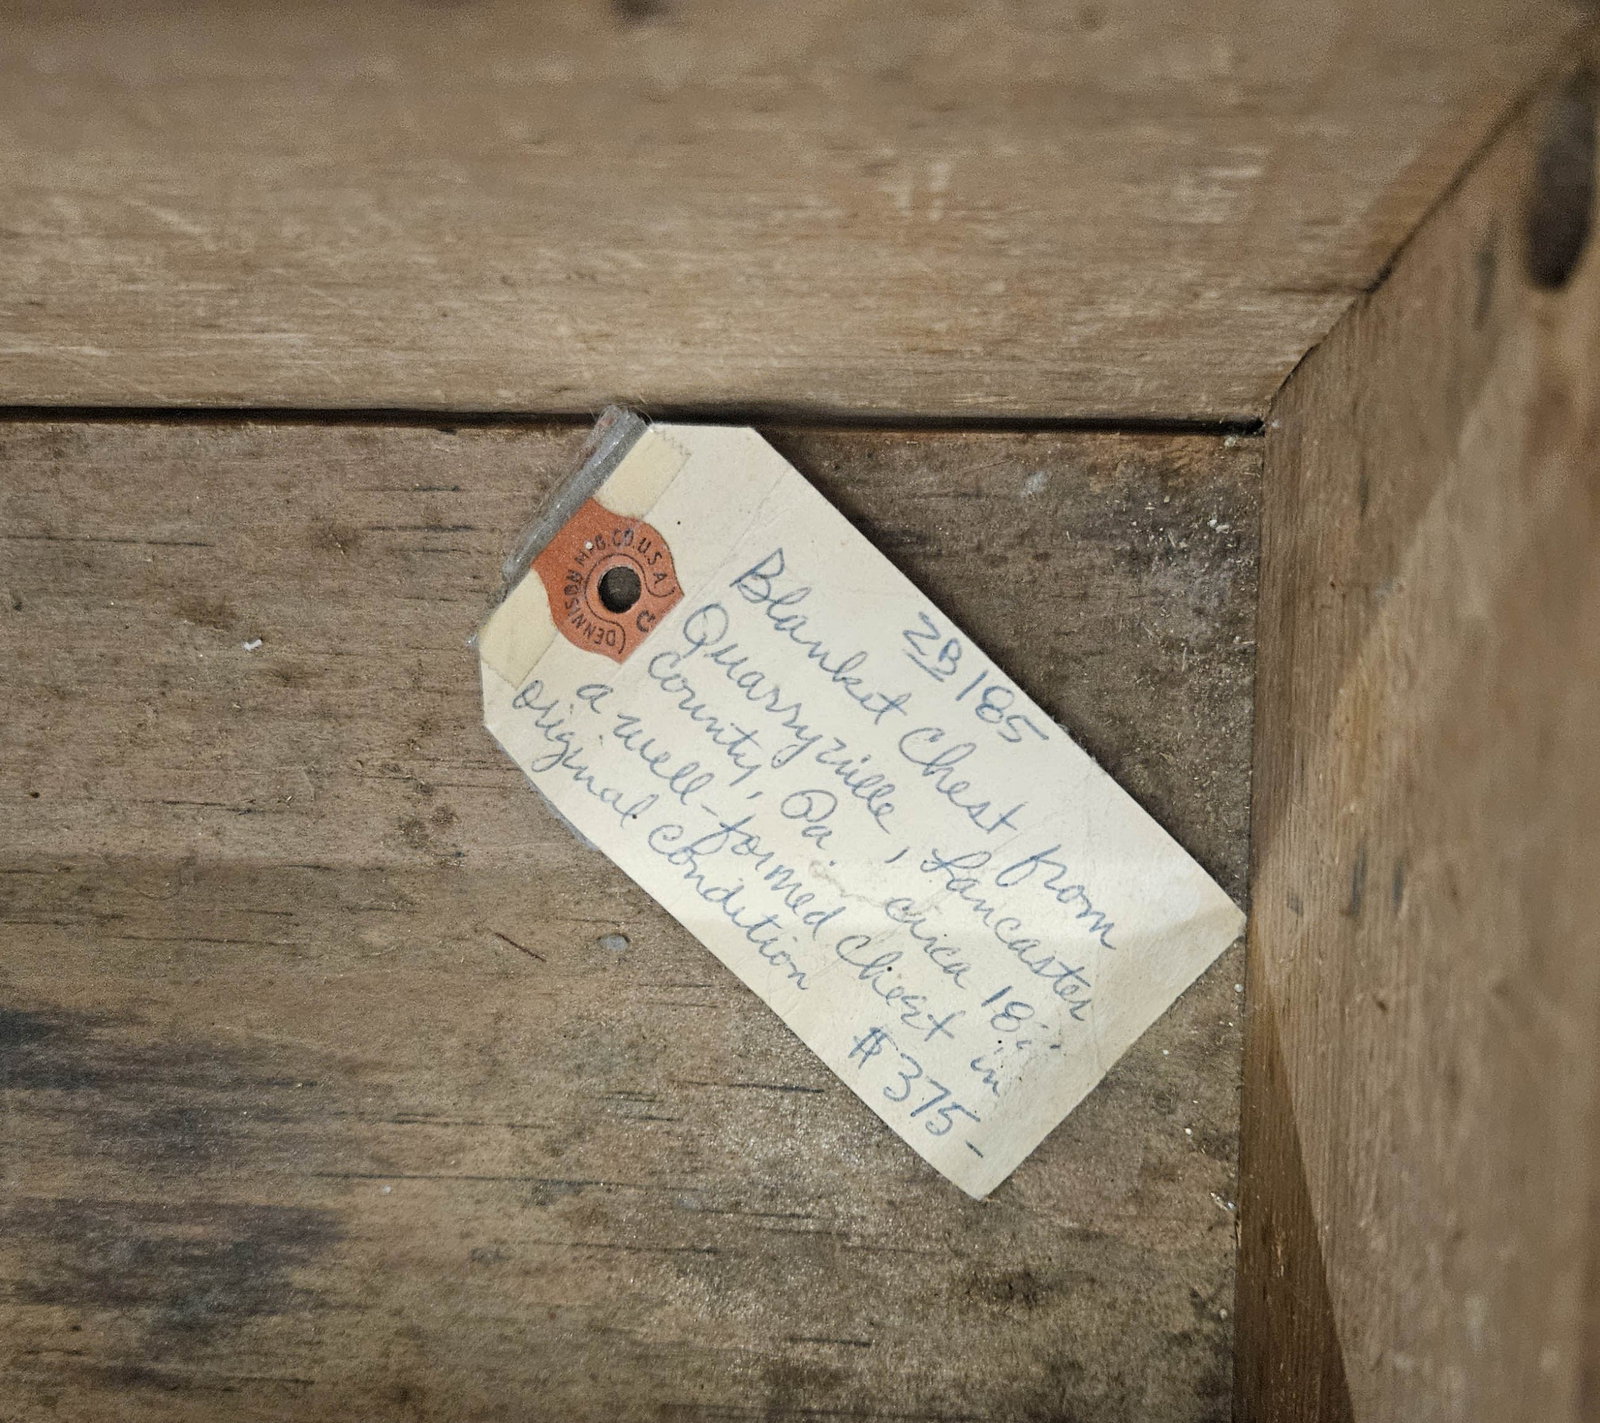 ZB 185
Blanket Chest from
Quarryville, Lancaster
County, Pa. circa 18
a well-formed chest in
original condition
$375-
(DENNISON MFG.CO.U.S.A.)
C